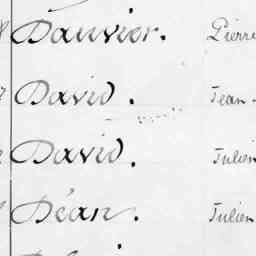 Dauvier. Pierre
David. Jean
David. Julien
Déan. Julien